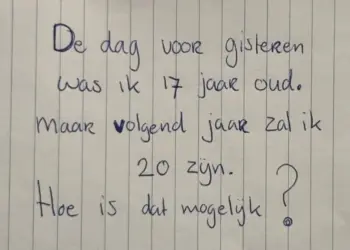 De dag voor gisteren
was ik 17 jaar oud.
maar volgend jaar zal ik
20 zijn.
Hoe is dat mogelijk?